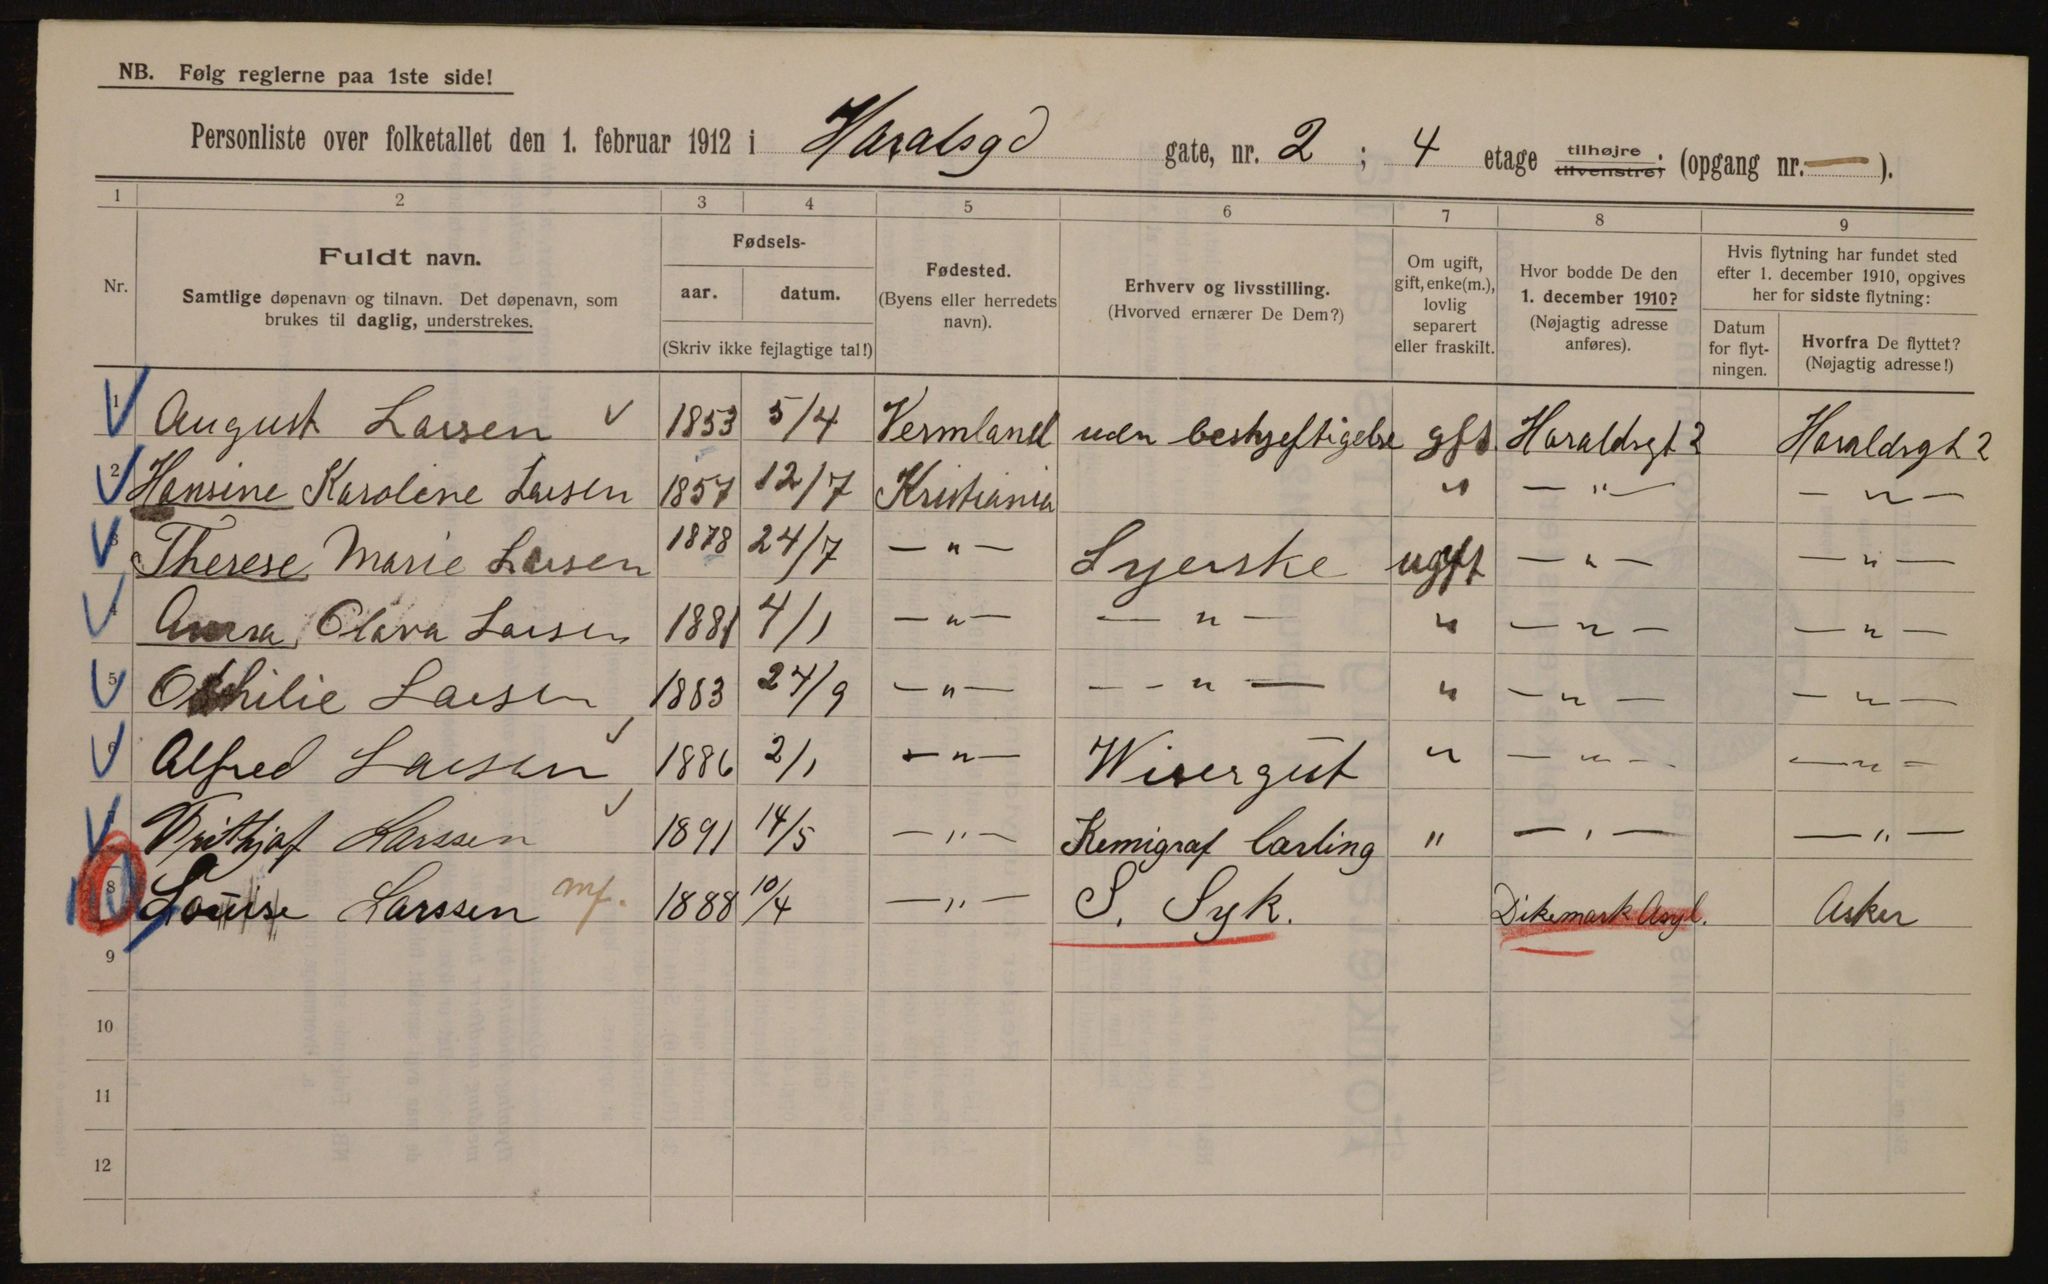 NB. Følg reglerne paa 1ste side!
Personliste over folketallet den 1. februar 1912 i Haralsgd gate, nr. 2 ; 4 etage tilhøjre tilvenstre; (opgang nr. — ).
1 2 3 4 5 6 7 8 9
Nr.
Fuldt navn.
Samtlige døpenavn og tilnavn. Det døpenavn, som
brukes til daglig, understrekes.
Fødsels-
aar. datum.
(Skriv ikke fejlagtige tal!)
Fødested.
(Byens eller herredets
navn).
Erhverv og livsstilling.
(Hvorved ernærer De Dem?)
Om ugift,
gift, enke(m.),
lovlig
separert
eller fraskilt.
Hvor bodde De den
1. december 1910?
(Nøjagtig adresse
anføres).
Hvis flytning har fundet sted
efter 1. december 1910, opgives
her for sidste flytning:
Datum
for flyt-
ningen.
Hvorfra De flyttet?
(Nøjagtig adresse!)
1 August Larsen 1853 5/4 Vermland uden beskjeftigelse gft Haraldsgt 2 Haraldsgt 2
2 Hansine Karoline Larsen 1857 12/7 Kristiania " — " — — " —
3 Therese Marie Larsen 1878 24/7 — " — Syerske ugft — " — — " —
4 Anna Olava Larsen 1881 4/1 — " — — " — " — " — — " —
5 Othilie Larsen 1883 24/9 — " — — " — " — " — — " —
6 Alfred Larsen 1886 2/1 — " — Visergut " — " — — " —
7 Frithjof Larssen 1891 14/5 — " — Kemigraf lærling " — " — — " —
8 Louise Larssen mf. 1888 10/4 — " — S. Syk. Dikemark Asyl. Asker
9
10
11
12